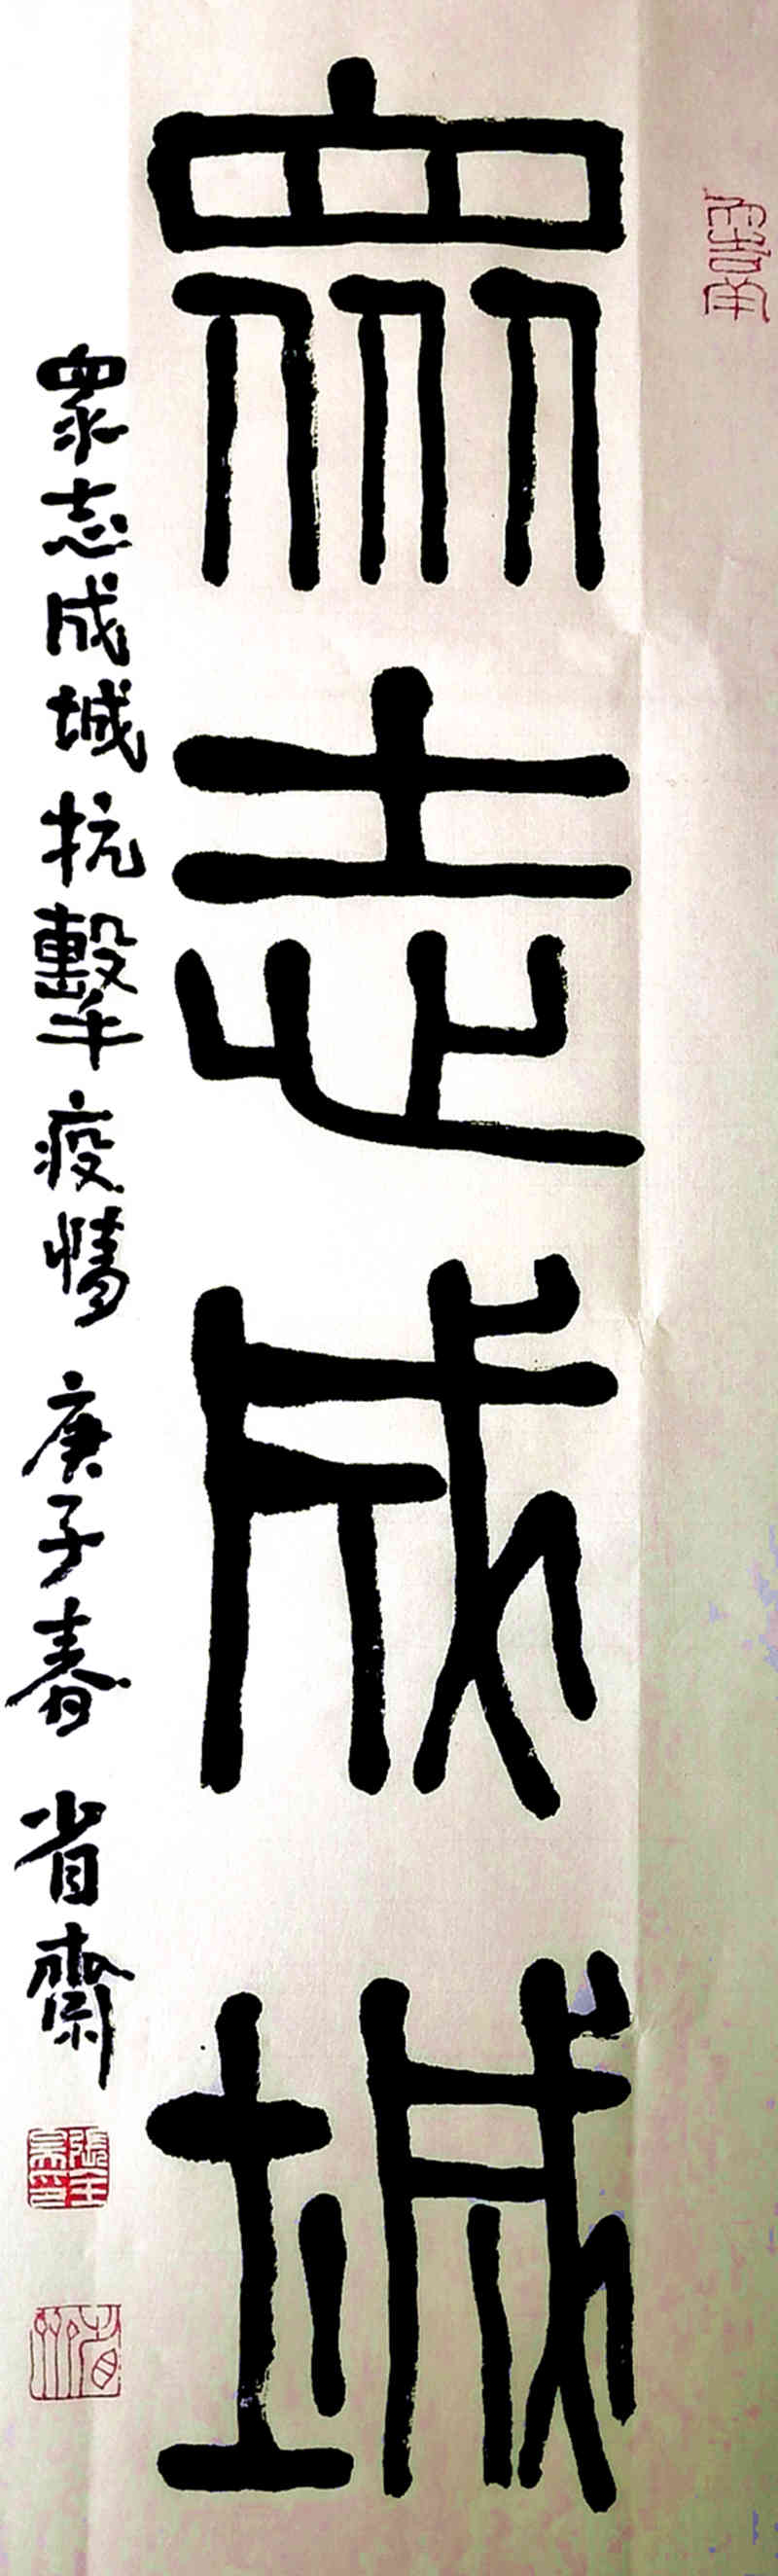 眾志成城
眾志成城抗擊疫情 庚子春 省齋